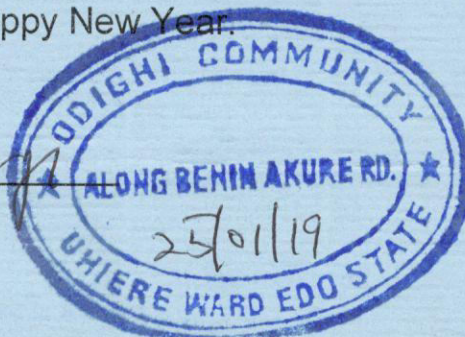 ppy New Year.
ODIGHI COMMUNITY
ALONG BENIN AKURE RD.
25/01/19
UHIERE WARD EDO STATE